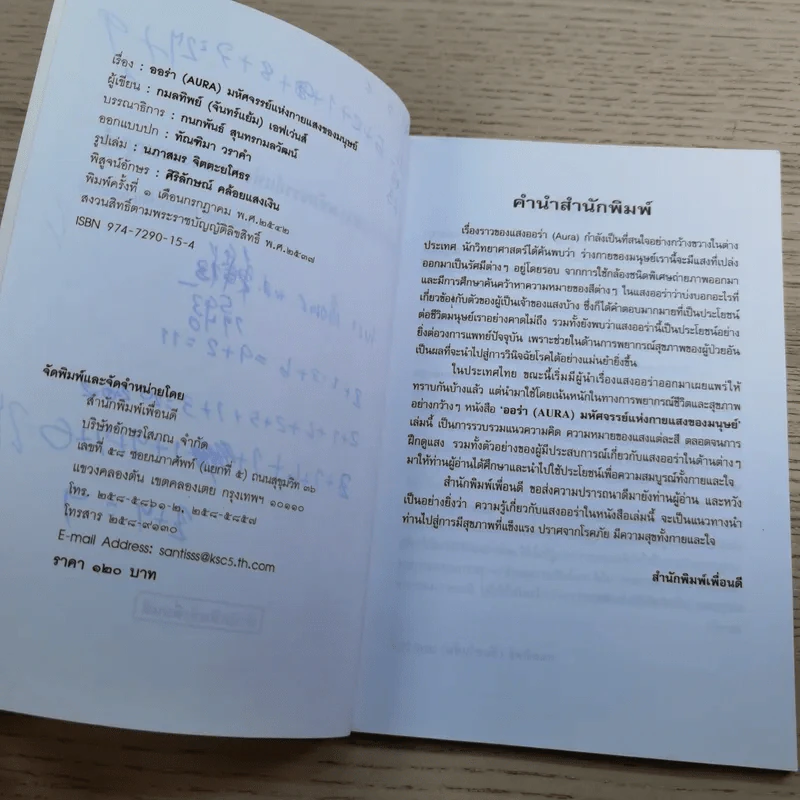 เรื่อง : ออร่า (AURA) มหัศจรรย์แห่งกายแสงของมนุษย์
ผู้เขียน : กมลทิพย์ (จันทร์แย้ม) เอฟเว่นส์
บรรณาธิการ : กนกพันธ์ สุนทรกมลวัฒน์
ออกแบบปก : ทัณฑิมา วราคำ
รูปเล่ม : นภาสมร จิตตะยโศธร
พิสูจน์อักษร : ศิริลักษณ์ คล้อยแสงเงิน
พิมพ์ครั้งที่ ๑ เดือนกรกฎาคม พ.ศ.๒๕๔๒
สงวนสิทธิ์ตามพระราชบัญญัติลิขสิทธิ์ พ.ศ.๒๕๓๗
ISBN 974-7290-15-4
จัดพิมพ์และจัดจำหน่ายโดย
สำนักพิมพ์เพื่อนดี
บริษัทอักษรโสภณ จำกัด
เลขที่ ๕๘ ซอยนภาศัพท์ (แยกที่ ๕) ถนนสุขุมวิท ๓๖
แขวงคลองตัน เขตคลองเตย กรุงเทพฯ ๑๐๑๑๐
โทร. ๒๕๘-๕๘๖๑-๒, ๒๕๘-๕๘๕๗
โทรสาร ๒๕๘-๙๑๓๐
E-mail Address: santisss@ksc5.th.com
ราคา ๑๒๐ บาท
คำนำสำนักพิมพ์
เรื่องราวของแสงออร่า (Aura) กำลังเป็นที่สนใจอย่างกว้างขวางในต่าง
ประเทศ นักวิทยาศาสตร์ได้ค้นพบว่า ร่างกายของมนุษย์เรานี้จะมีแสงที่เปล่ง
ออกมาเป็นรัศมีต่างๆ อยู่โดยรอบ จากการใช้กล้องชนิดพิเศษถ่ายภาพออกมา
และมีการศึกษาค้นคว้าหาความหมายของสีต่างๆ ในแสงออร่าว่าบ่งบอกอะไรที่
เกี่ยวข้องกับตัวของผู้เป็นเจ้าของแสงบ้าง ซึ่งก็ได้คำตอบมากมายที่เป็นประโยชน์
ต่อชีวิตมนุษย์เราอย่างคาดไม่ถึง รวมทั้งยังพบว่าแสงออร่านี้เป็นประโยชน์อย่าง
ยิ่งต่อวงการแพทย์ปัจจุบัน เพราะช่วยในด้านการพยากรณ์สุขภาพของผู้ป่วยอัน
เป็นผลที่จะนำไปสู่การวินิจฉัยโรคได้อย่างแม่นยำยิ่งขึ้น
ในประเทศไทย ขณะนี้เริ่มมีผู้นำเรื่องแสงออร่าออกมาเผยแพร่ให้
ทราบกันบ้างแล้ว แต่นำมาใช้โดยเน้นหนักในทางการพยากรณ์ชีวิตและสุขภาพ
อย่างกว้างๆ หนังสือ 'ออร่า (AURA) มหัศจรรย์แห่งกายแสงของมนุษย์'
เล่มนี้ เป็นการรวบรวมแนวความคิด ความหมายของแสงแต่ละสี ตลอดจนการ
ฝึกดูแสง รวมทั้งตัวอย่างของผู้มีประสบการณ์เกี่ยวกับแสงออร่าในด้านต่างๆ
มาให้ท่านผู้อ่านได้ศึกษาและนำไปใช้ประโยชน์เพื่อความสมบูรณ์ทั้งกายและใจ
สำนักพิมพ์เพื่อนดี ขอส่งความปรารถนาดีมายังท่านผู้อ่าน และหวัง
เป็นอย่างยิ่งว่า ความรู้เกี่ยวกับแสงออร่าในหนังสือเล่มนี้ จะเป็นแนวทางนำ
ท่านไปสู่การมีสุขภาพที่แข็งแรง ปราศจากโรคภัย มีความสุขทั้งกายและใจ
สำนักพิมพ์เพื่อนดี